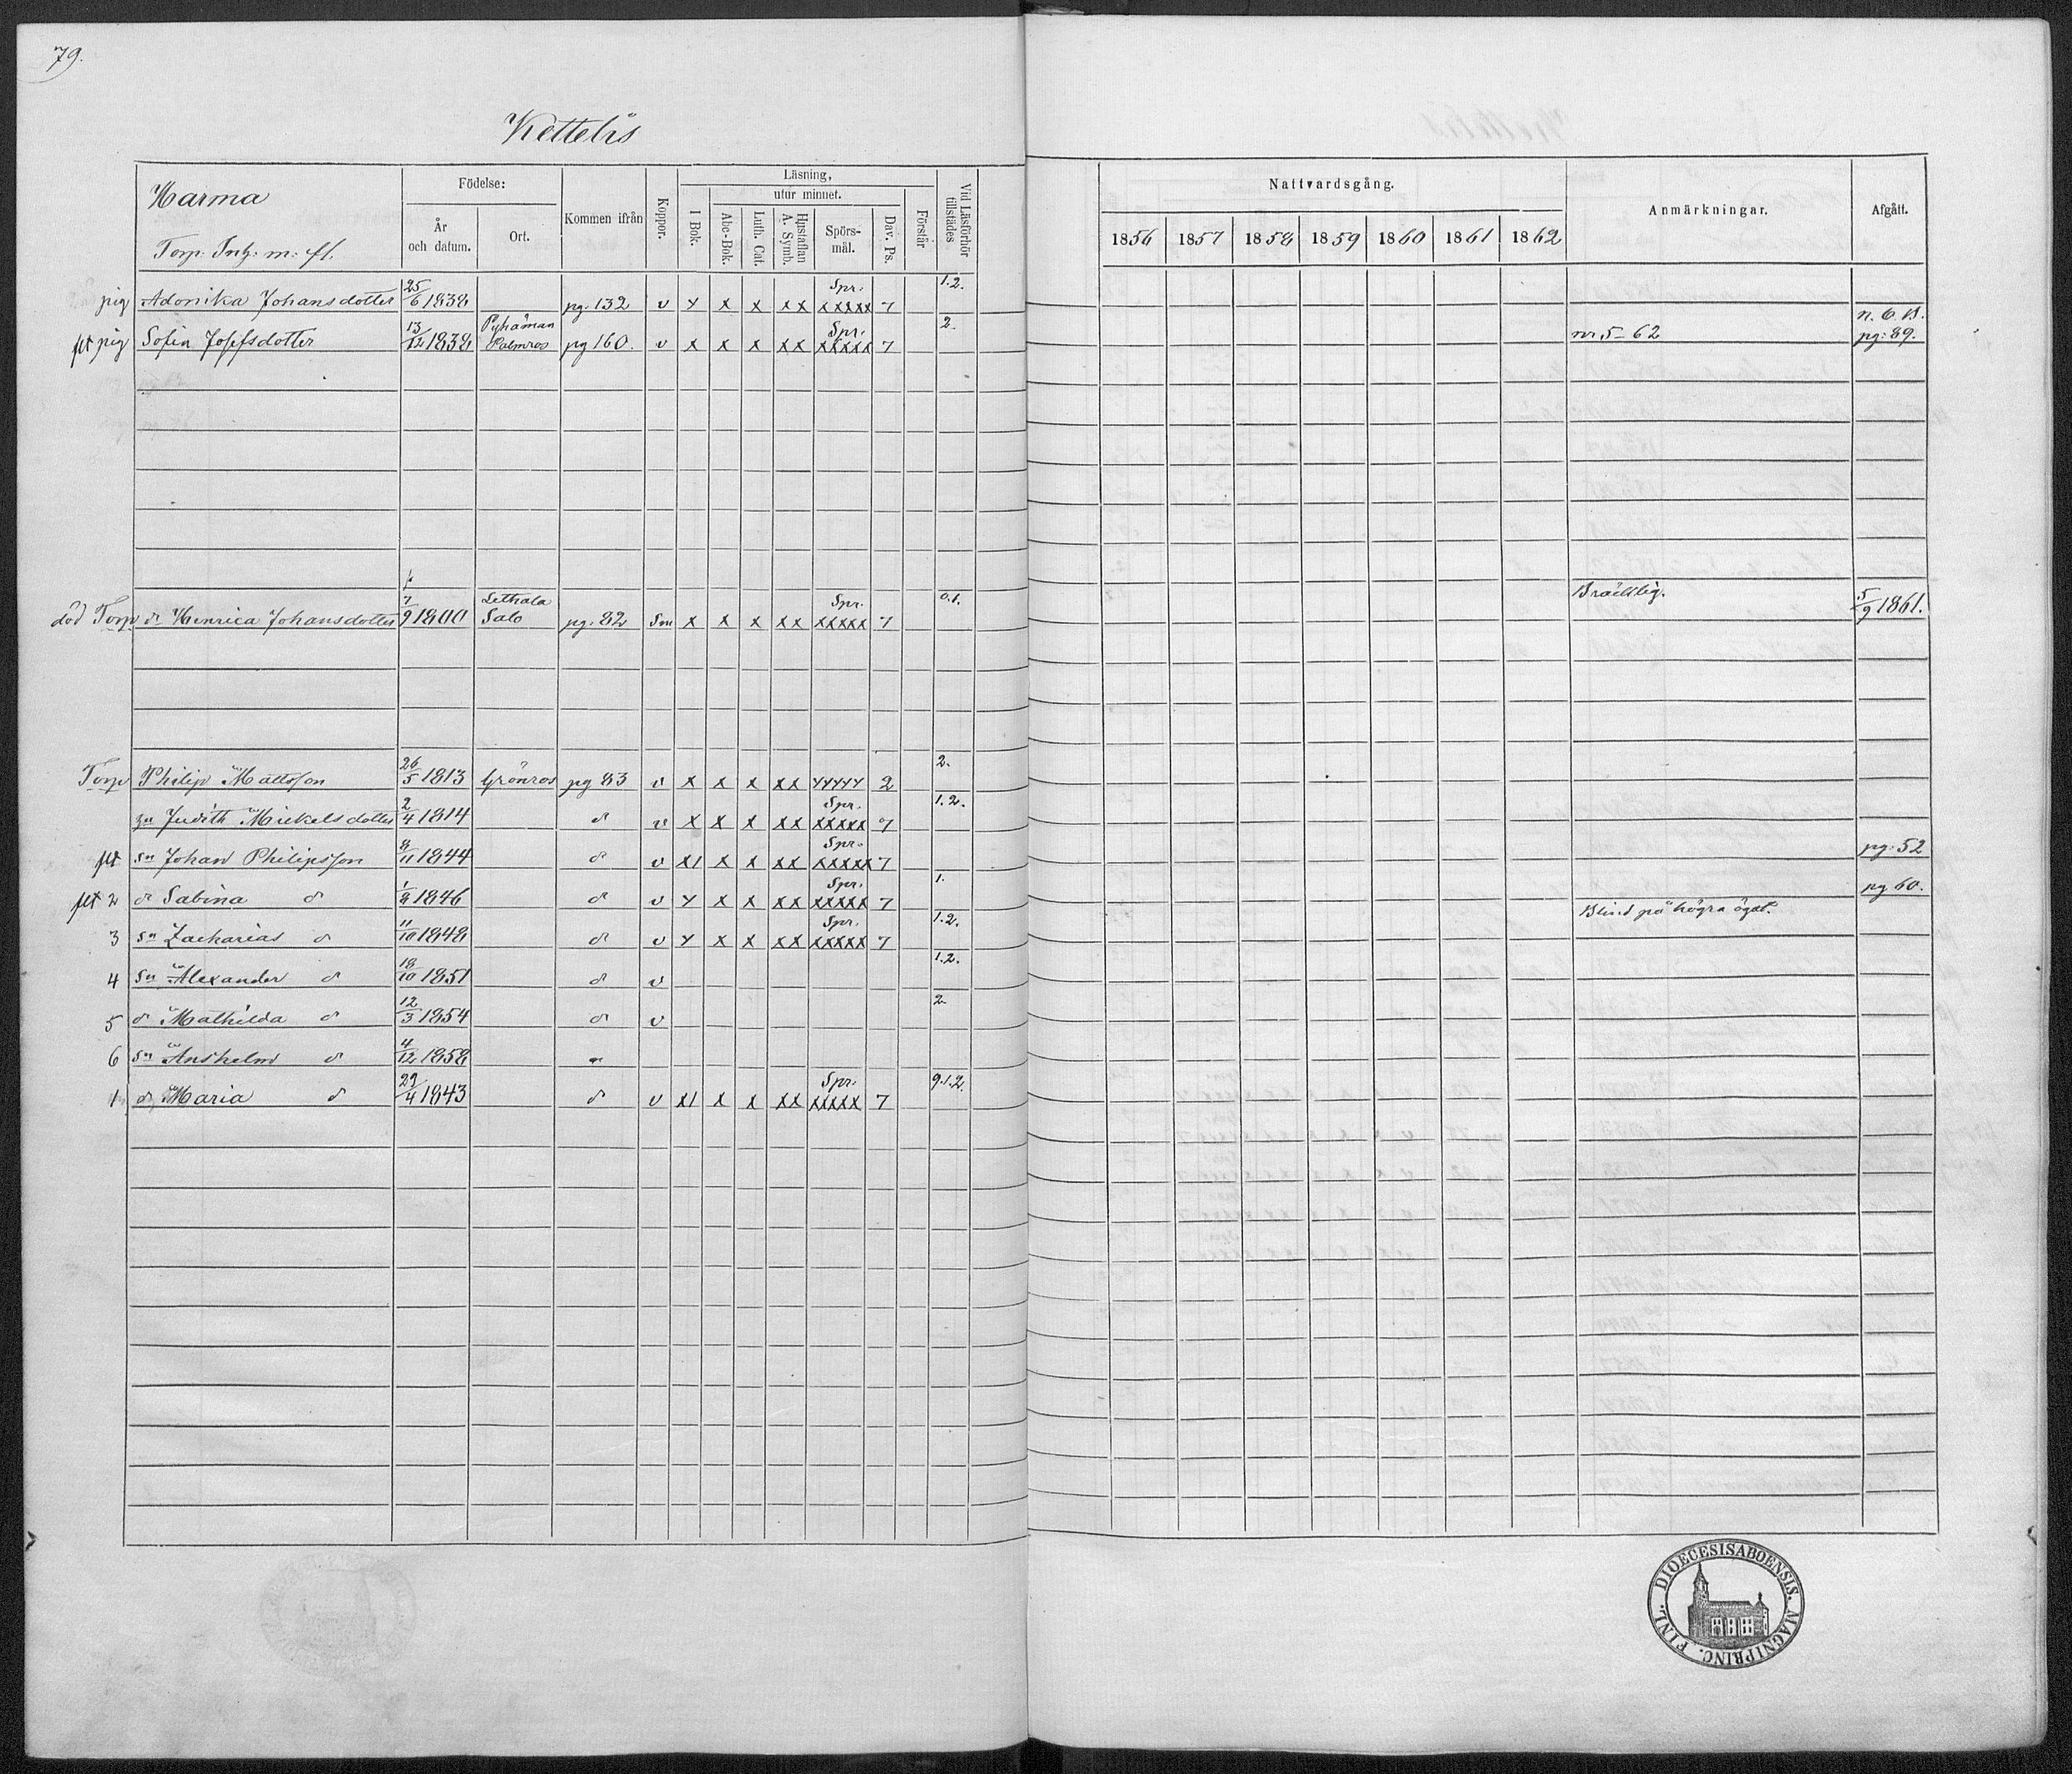 79.
Kettelis
Harma
Torp. Inh: m: fl.
Födelse:
År och datum.
Ort.
Kommen ifrån
Koppor.
Läsning,
I Bok.
utur minnet.
Abc-Bok.
Luth. Cat.
Hustaflan A. Symb.
Spörs-mål.
Dav. Ps.
Förstår
Vid Läsförhör tillstädes
Nattvardsgång.
1856 1857 1858 1859 1860 1861 1862
Anmärkningar.
Afgått.
pig Adonika Johansdotter 25/6 1838 pg. 132 v y x x xx Spr. xxxxx 7 1.2.
flt pig Sofia Josefsdotter 13/12 1838 Pyhämaa pg 160. v x x x xx Spr. xxxxx 7 2. nr 5-62 pg: 89.
död Torp dr Henrica Johansdotter 7/9 1800 Lethala Salo pg. 82 Sm x x x xx Spr. xxxxx 7 0.1. Bräcklig. 5/9 1861.
Torp Philip Mattsson 26/5 1813 Grönros pg 83 v x x x xx yyyyy 2 2.
Judith Mickelsdotter 2/4 1814 d v x x x xx Spr. xxxxx 7 1.2.
flt sn Johan Philipsson 8/11 1844 d v xi x x xx Spr. xxxxx 7 pg: 52
flt 2 dr Sabina d 1/8 1846 d v y x x xx Spr. xxxxx 7 1. pg 60.
3 sn Zacharias d 11/10 1848 d v y x x xx Spr. xxxxx 7 1.2. Blind på högra ögat.
4 sn Alexander d 18/10 1851 d v 1.2.
5 d Mathilda d 12/3 1854 d v 2.
6 sn Anshelm d 4/12 1858
1 dr Maria d 29/4 1843 d v xi x x xx Spr. xxxxx 7 9.1.2.
DIOECESIS ABOENSIS. MAGNI PRINC. FINL.